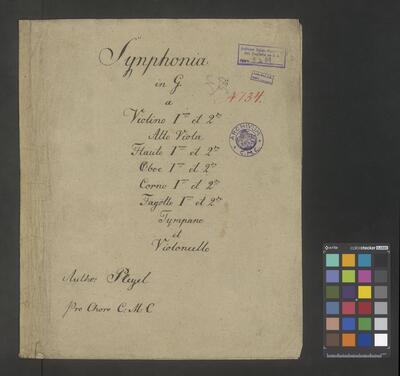 Synphonia
in G.
a
Violino 1mo et 2do
Alto Viola
Flauto 1mo et 2do
Oboe 1mo et 2do
Corno 1mo et 2do
Fagotto 1mo et 2do
Tympano
et
Violoncello
Author Pleyel
Pro Choro C. M. C
A 734.
ARCHIVUM
C.M.C.
colorchecker CLASSIC